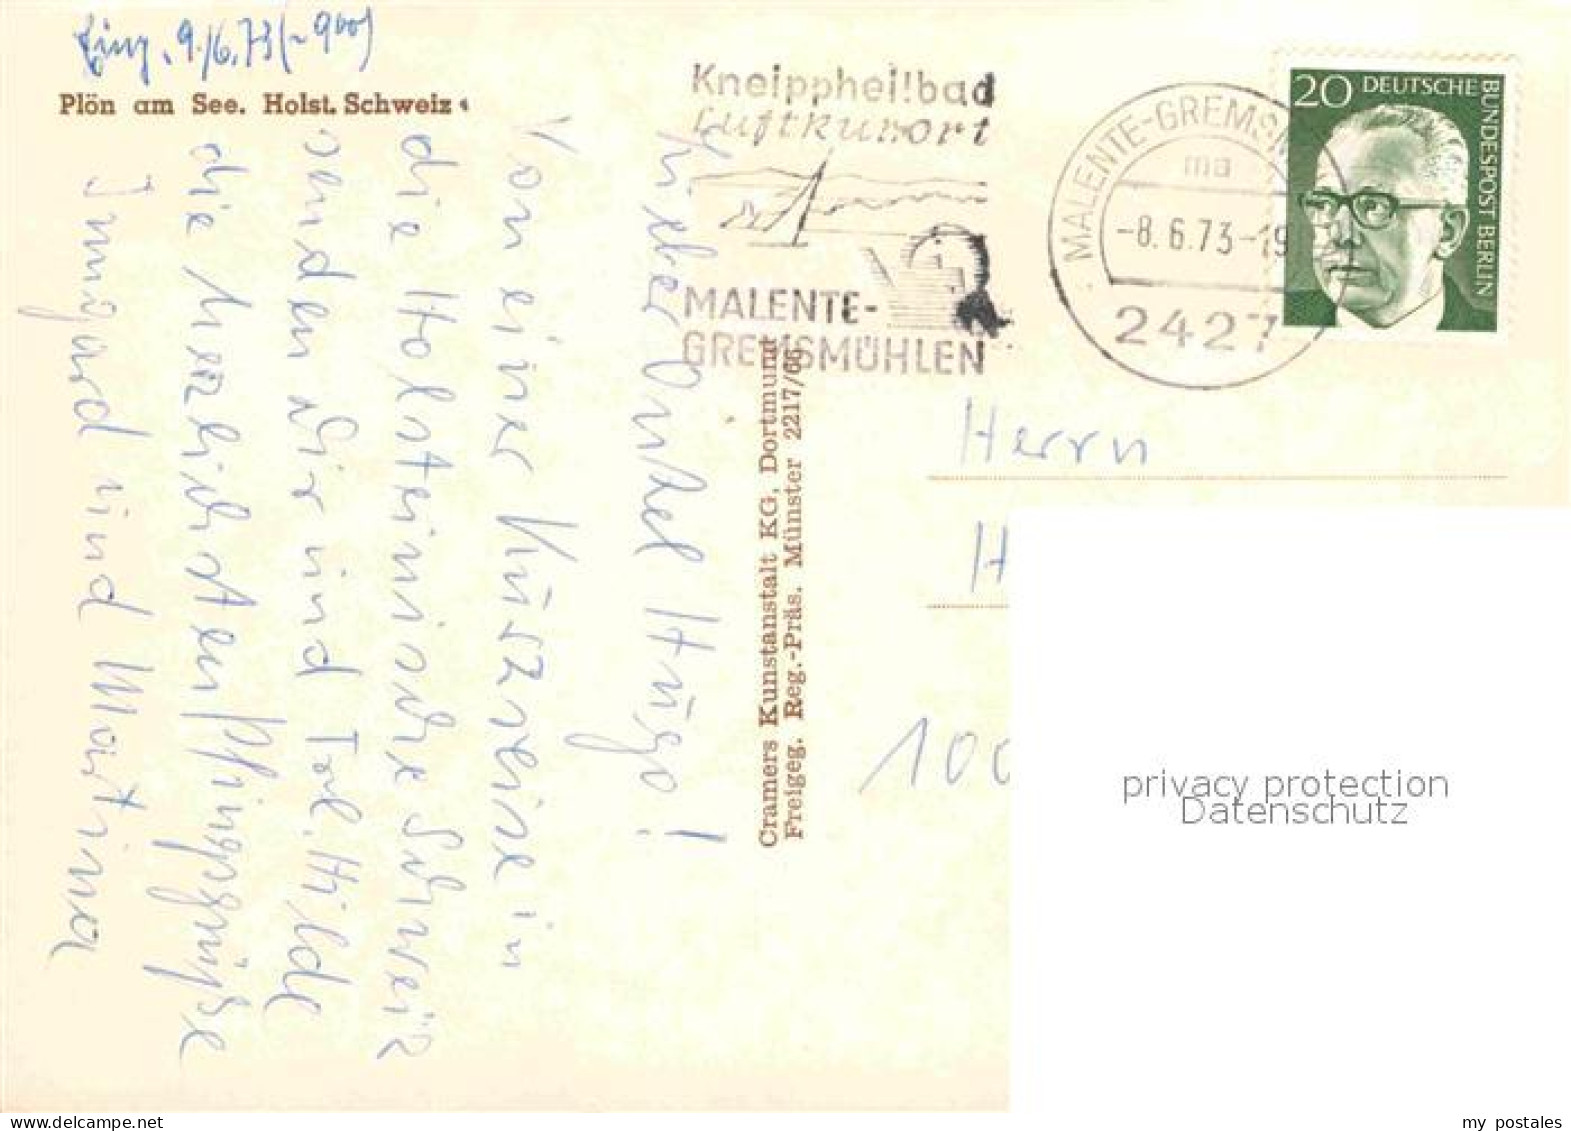 Eing. 9./6.73 (~9⁰⁰)
Plön am See. Holst. Schweiz
Lieber Onkel Hugo!
Von einer Kurzreise in
die Holsteinische Schweiz
senden wir und Tel. Hilde
die herzlichsten Pfingstgrüße
Irmgard und Martina
Cramers Kunstanstalt KG, Dortmund
Freigeg. Reg.-Präs. Münster 2217/66
Kneippheilbad
Luftkurort
MALENTE-
GREMSMÜHLEN
MALENTE-GREMSM
ma
-8.6.73-19
2427
20 DEUTSCHE
BUNDESPOST BERLIN
Herrn
H
100
privacy protection
Datenschutz
my postales